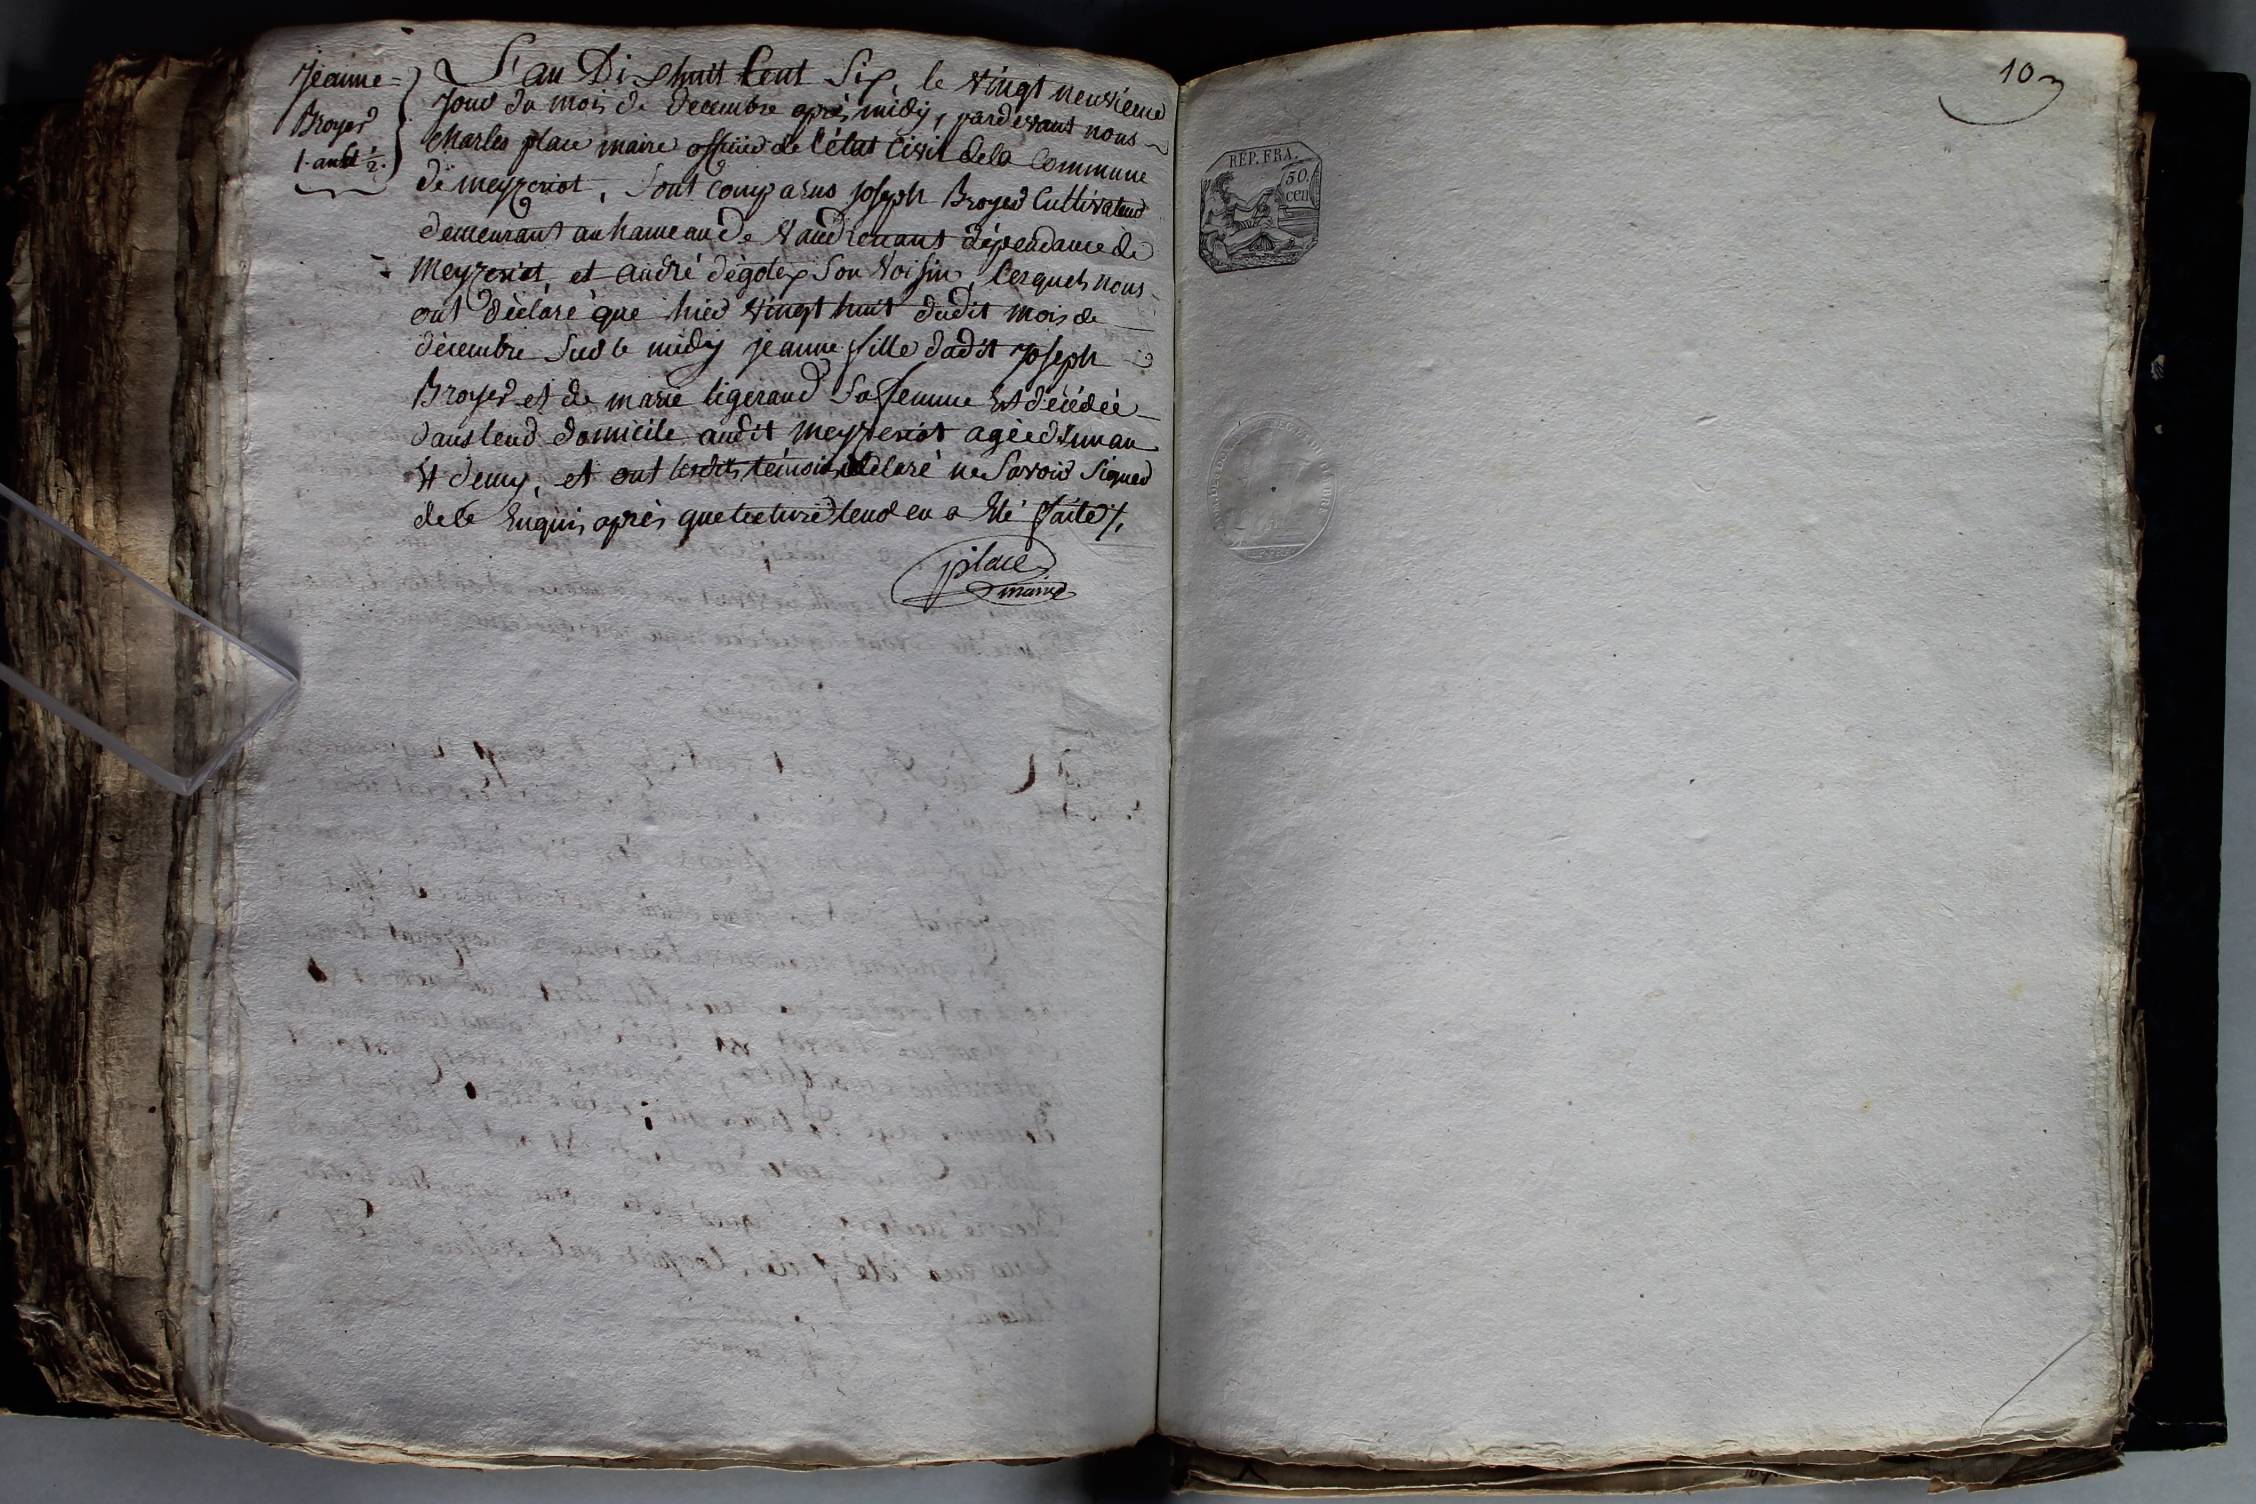 Jeanne =
Broyer
1. an et ½.
L'an Dixhuit Cent Six, le vingt neuvieme
Jour du mois de decembre après midy, pardevant nous
Charles place maire officier de l'état Civil dela Commune
de meyzeriat, Sont comparus Joseph Broyer Cultivateur
demeurant au hameau de Vaudrenant dépendance de
Meyzeriat, et andré dègolex son Voisin, lesquels nous
ont dèclaré que hier vingt huit dudit mois de
décembre Sur le midy jeanne fille dudit Joseph
Broyer et de marie ligeraud Sa femme Est décédée
dans leur domicile audit meyzeriat agée d'un an
Et demy, et ont lesdits témoins déclaré ne Savoir Signer
dece Enquis après que lecture leur en a Eté faite ∕.
place
maire
10
REP. FRA.
50.
cen